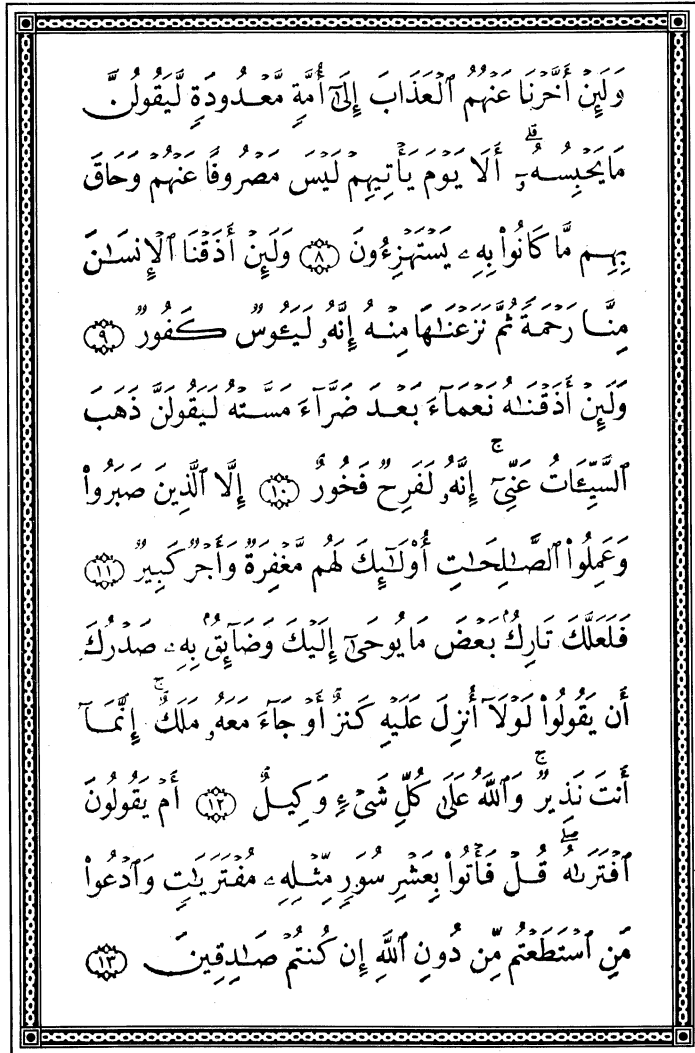 وَلَئِنْ أَخَّرْنَا عَنْهُمُ ٱلْعَذَابَ إِلَىٰٓ أُمَّةٍ مَّعْدُودَةٍ لَّيَقُولُنَّ
مَا يَحْبِسُهُۥٓ ۗ أَلَا يَوْمَ يَأْتِيهِمْ لَيْسَ مَصْرُوفًا عَنْهُمْ وَحَاقَ
بِهِم مَّا كَانُوا۟ بِهِۦ يَسْتَهْزِءُونَ ٨ وَلَئِنْ أَذَقْنَا ٱلْإِنسَـٰنَ
مِنَّا رَحْمَةً ثُمَّ نَزَعْنَـٰهَا مِنْهُ إِنَّهُۥ لَيَـُٔوسٌ كَفُورٌ ٩
وَلَئِنْ أَذَقْنَـٰهُ نَعْمَآءَ بَعْدَ ضَرَّآءَ مَسَّتْهُ لَيَقُولَنَّ ذَهَبَ
ٱلسَّيِّـَٔاتُ عَنِّىٓ ۚ إِنَّهُۥ لَفَرِحٌ فَخُورٌ ١٠ إِلَّا ٱلَّذِينَ صَبَرُوا۟
وَعَمِلُوا۟ ٱلصَّـٰلِحَـٰتِ أُو۟لَـٰٓئِكَ لَهُم مَّغْفِرَةٌ وَأَجْرٌ كَبِيرٌ ١١
فَلَعَلَّكَ تَارِكٌۢ بَعْضَ مَا يُوحَىٰٓ إِلَيْكَ وَضَآئِقٌۢ بِهِۦ صَدْرُكَ
أَن يَقُولُوا۟ لَوْلَآ أُنزِلَ عَلَيْهِ كَنزٌ أَوْ جَآءَ مَعَهُۥ مَلَكٌ ۚ إِنَّمَآ
أَنتَ نَذِيرٌ ۚ وَٱللَّهُ عَلَىٰ كُلِّ شَىْءٍ وَكِيلٌ ١٢ أَمْ يَقُولُونَ
ٱفْتَرَىٰهُ ۖ قُلْ فَأْتُوا۟ بِعَشْرِ سُوَرٍ مِّثْلِهِۦ مُفْتَرَيَـٰتٍ وَٱدْعُوا۟
مَنِ ٱسْتَطَعْتُم مِّن دُونِ ٱللَّهِ إِن كُنتُمْ صَـٰدِقِينَ ١٣